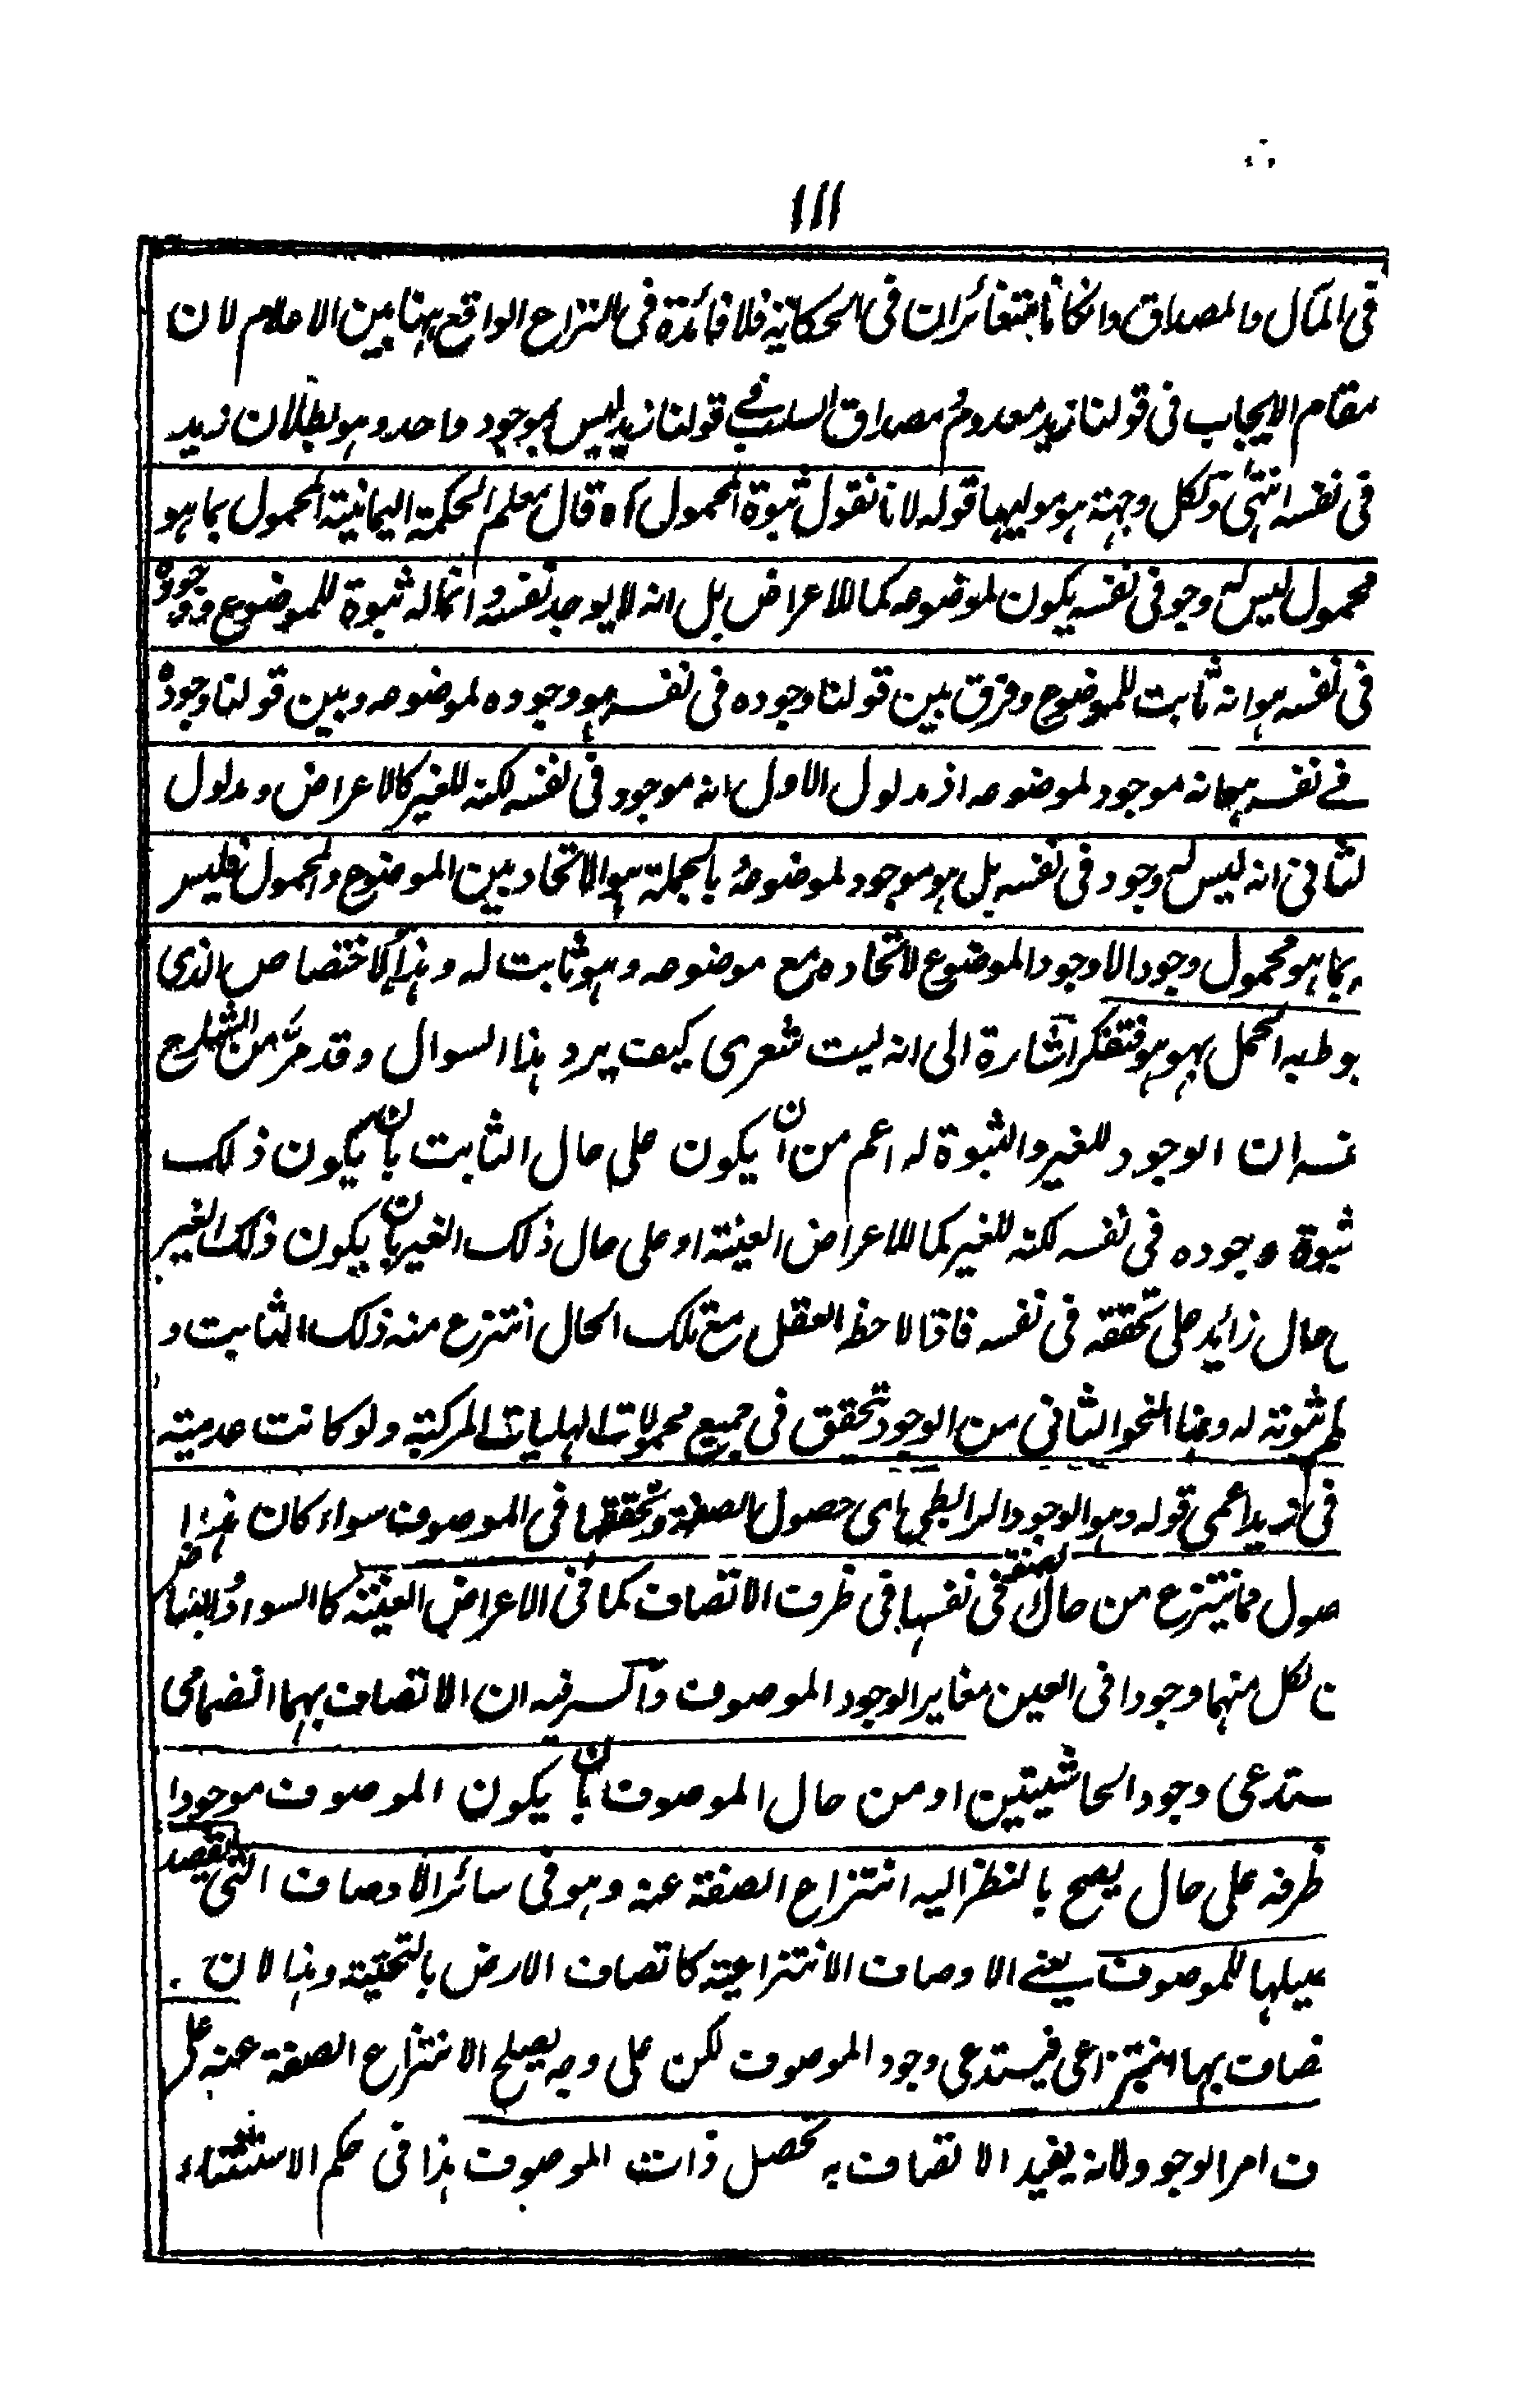 ١١١
فى المآل والمصداق وانكانا متغائران فى الحكاية فلا فائدة فى النزاع الواقع ههنا بين الاعلام لان
مقام الايجاب فى قولنا زيد معدوم مصداق السلب فى قولنا زيد ليس بموجود واحد وهو بطلان زيد
فى نفسه انتهى ولكل وجهة هو موليها قوله لانا نقول ثبوة المحمول اه قال معلم الحكمة اليمانية المحمول بما هو
محمول ليس له وجود فى نفسه يكون لموضوعه كما للاعراض بل انه لا يوجد نفسه وانما له ثبوة للموضوع ووجوده
فى نفسه هو انه ثابت للموضوع وفرق بين قولنا وجوده فى نفسه هو وجوده لموضوعه وبين قولنا وجوده
فے نفسه هو انه موجود لموضوعه اذ مدلول الاول انه موجود فى نفسه لكنه للغير كالاعراض ومدلول
لثانى انه ليس له وجود فى نفسه بل هو موجود لموضوعه بالجملة هو الاتحاد بين الموضوع والمحمول فليس
بما هو محمول وجود الا وجود الموضوع لاتحاده مع موضوعه وهو ثابت له وهذا الاختصاص الذى
بوطبه الحمل بهو هو فتفكر اشارة الى انه ليت شعرى كيف يرد هذا السوال وقد مر من الشارح
نسه ان الوجود للغير والثبوة له اعم من ان يكون على حال الثابت بان يكون ذلك
ثبوة وجوده فى نفسه لكنه للغير كما للاعراض العينة او على حال ذلك الغير بان يكون ذلك الغير
حال زائد على تحققه فى نفسه فاذا لاحظ العقل مع تلك الحال انتزع منه ذلك الثابت و
ثبوته له وهذا النحو الثانى من الوجود تحقق فى جميع محمولات الهليات المركبة ولو كانت عدمية
فى زيد اعمى قوله وهو الوجود الرابطى اى حصول الصفة وتحققها فى الموصوف سواء كان هذا
صول مما ينتزع من حال الصفة فى نفسها فى ظرف الاتصاف كما فى الاعراض العينة كالسواد والبياض
ن لكل منهما وجودا فى العين مغاير الوجود الموصوف والسر فيه ان الاتصاف بهما انضمامى
ستدعى وجود الحاشيتين او من حال الموصوف بان يكون الموصوف موجودا
ظرفه على حال يصح بالنظر اليه انتزاع الصفة عنه وهو فى سائر الاوصاف التى
للموصوف يعنے الاوصاف الانتزاعية كاتصاف الارض بالتحتية وهذا لان
تصاف بها انتزاعى فيستدعى وجود الموصوف لكن على وجه يصلح الانتزاع الصفة عنه على
ف امر الوجود ولانه يفيد الاتصاف به تحصل ذات الموصوف هذا فى حكم الاستثناء